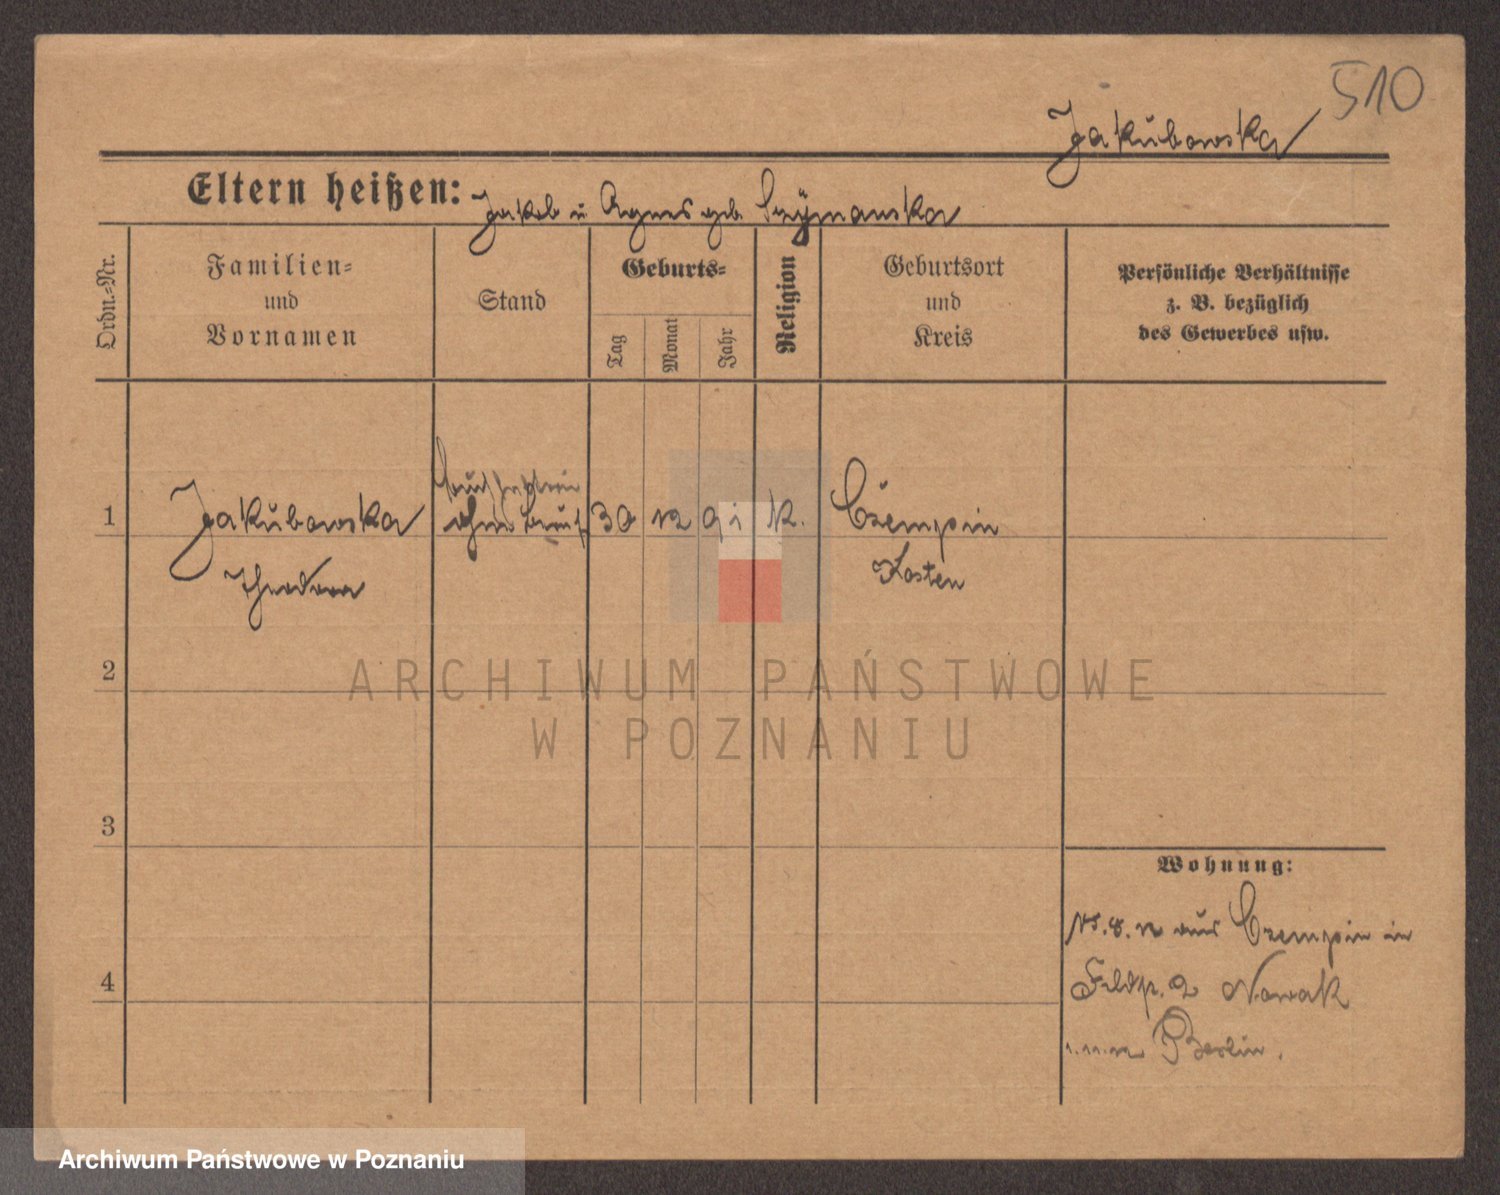 510
Jakubowska
Eltern heißen: Jakob u. Agnes geb. Szÿmanska
Ordn.-Nr.
Familien-
und
Vornamen
Stand
Geburts-
Tag
Monat
Jahr
Religion
Geburtsort
und
Kreis
Persönliche Verhältnisse
z. B. bezüglich
des Gewerbes usw.
1
Jakubowska
Theodora
ohne Beruf
30 12 91 k.
Czempin
Kosten
2
3
4
Wohnung:
15.8.12 aus Czempin in
Feldp. 2 Nowak
1.11.12 Berlin.
ARCHIWUM PAŃSTWOWE
W POZNANIU
Archiwum Państwowe w Poznaniu